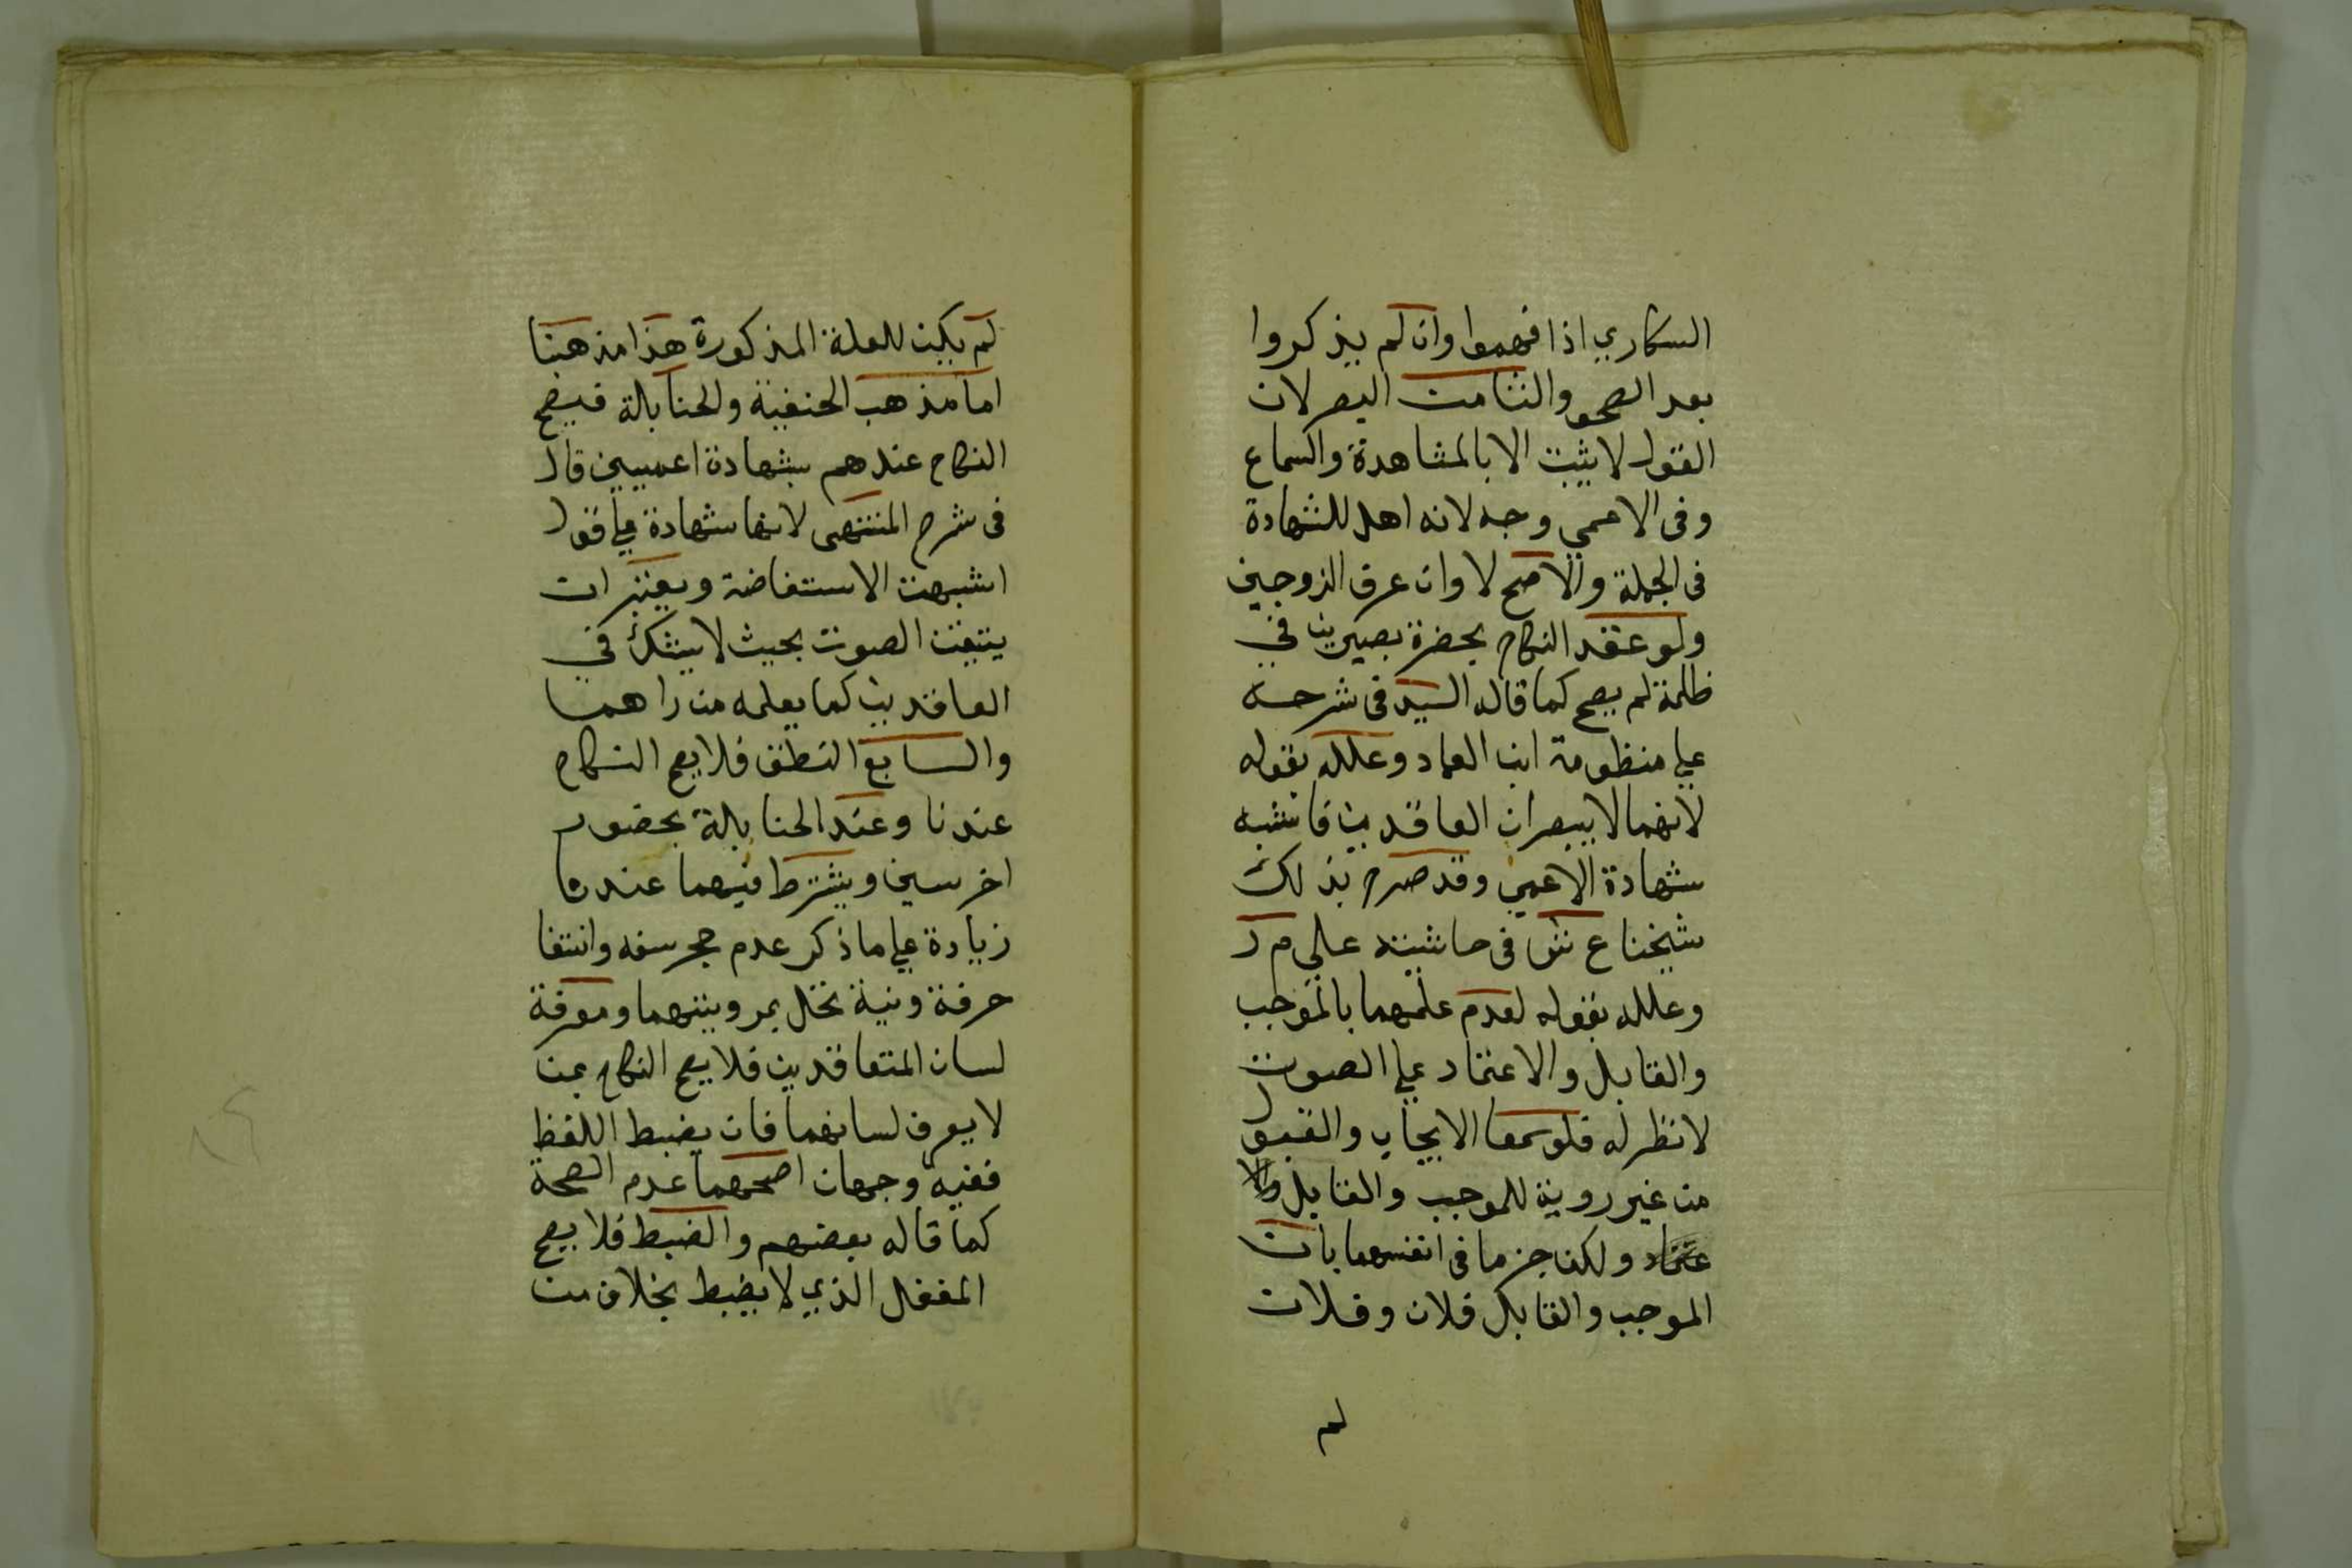 السكاري اذا فهموا وان لم يذكروا
بعد الصحو والثامن البصر لان
القول لا يثبت الا بالمشاهدة والسماع
وفى الاعمي وجه لانه اهل للشهادة
فى الجملة والاصح لا وان عرف الزوجين
ولو عقد النكاح بحضرة بصيرين في
ظلمة لم يصح كما قاله السيد فى شرحه
علي منظومة ابن العماد وعلله بقوله
لانهما لا يبصران العاقدين فاشبه
شهادة الاعمي وقد صرح بذلك
شيخنا ع ش فى حاشيته علي م ر
وعلله بقوله لعدم علمهما بالموجب
والقابل والاعتماد علي الصوت
لا نظر له فلو سمعا الايجاب والقبول
من غير روية للموجب والقابل
ولكن جزما فى انفسهما بان
الموجب والقابل فلان وفلان
لم
لم يكف للعلة المذكورة هذا مذهبنا
اما مذهب الحنفية والحنابلة فيصح
النكاح عندهم بشهادة اعميين قال
فى شرح المنتهى لانها شهادة علي قول
اشبهت الاستفاضة ويعتبر ان
يتيقن الصوت بحيث لا يشك في
العاقدين كما يعلمه من راهما
والسابع النطق فلا يصح النكاح
عندنا وعند الحنابلة بحضور
اخرسين ويشترط فيهما عندنا
زيادة علي ما ذكر عدم حجر سفه وانتفا
حرفة ونية تخل بمروتهما ومعرفة
لسان المتعاقدين فلا يصح النكاح بمن
لا يعرف لسانهما فان يضبط اللفظ
ففيه وجهان اصحهما عدم الصحة
كما قاله بعضهم والضبط فلا يصح
المغفل الذي لا يضبط بخلاف من